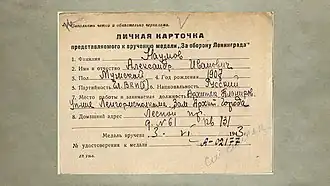 Заполнять четко и обязательно чернилами.
ЛИЧНАЯ КАРТОЧКА
представляемого к вручению медали „За оборону Ленинграда"
1. Фамилия Наумов
2. Имя и отчество Александр Иванович
3. Пол Мужской 4. Год рождения 1908
5. Партийность ВКП(б) 6. Национальность Русский
7. Место работы и занимаемая должность Архитек.
Зам. Архит. города
8. Домашний адрес Лесной пр.
д. №61 кв 131
Медаль вручена 3.
№ удостоверения к медали